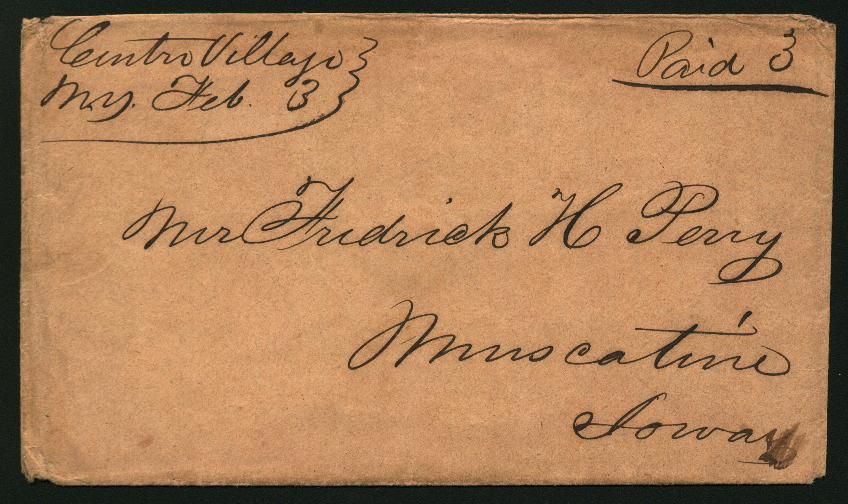 Centre Village
N.Y. Feb. 3
Paid 3
Mr Fredrick H Perry
Muscatine
Ioway